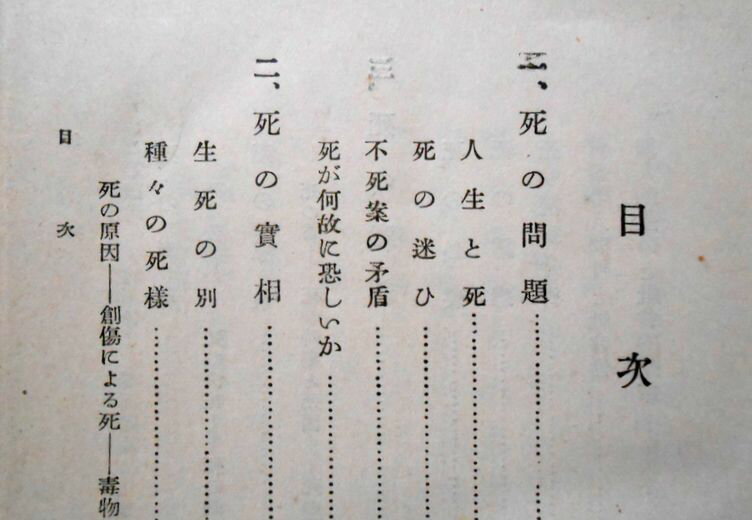 目次
一、死の問題
人生と死
死の迷ひ
不死案の矛盾
死が何故に恐しいか
二、死の實相
生死の別
種々の死樣
死の原因——創傷による死——毒物
目次